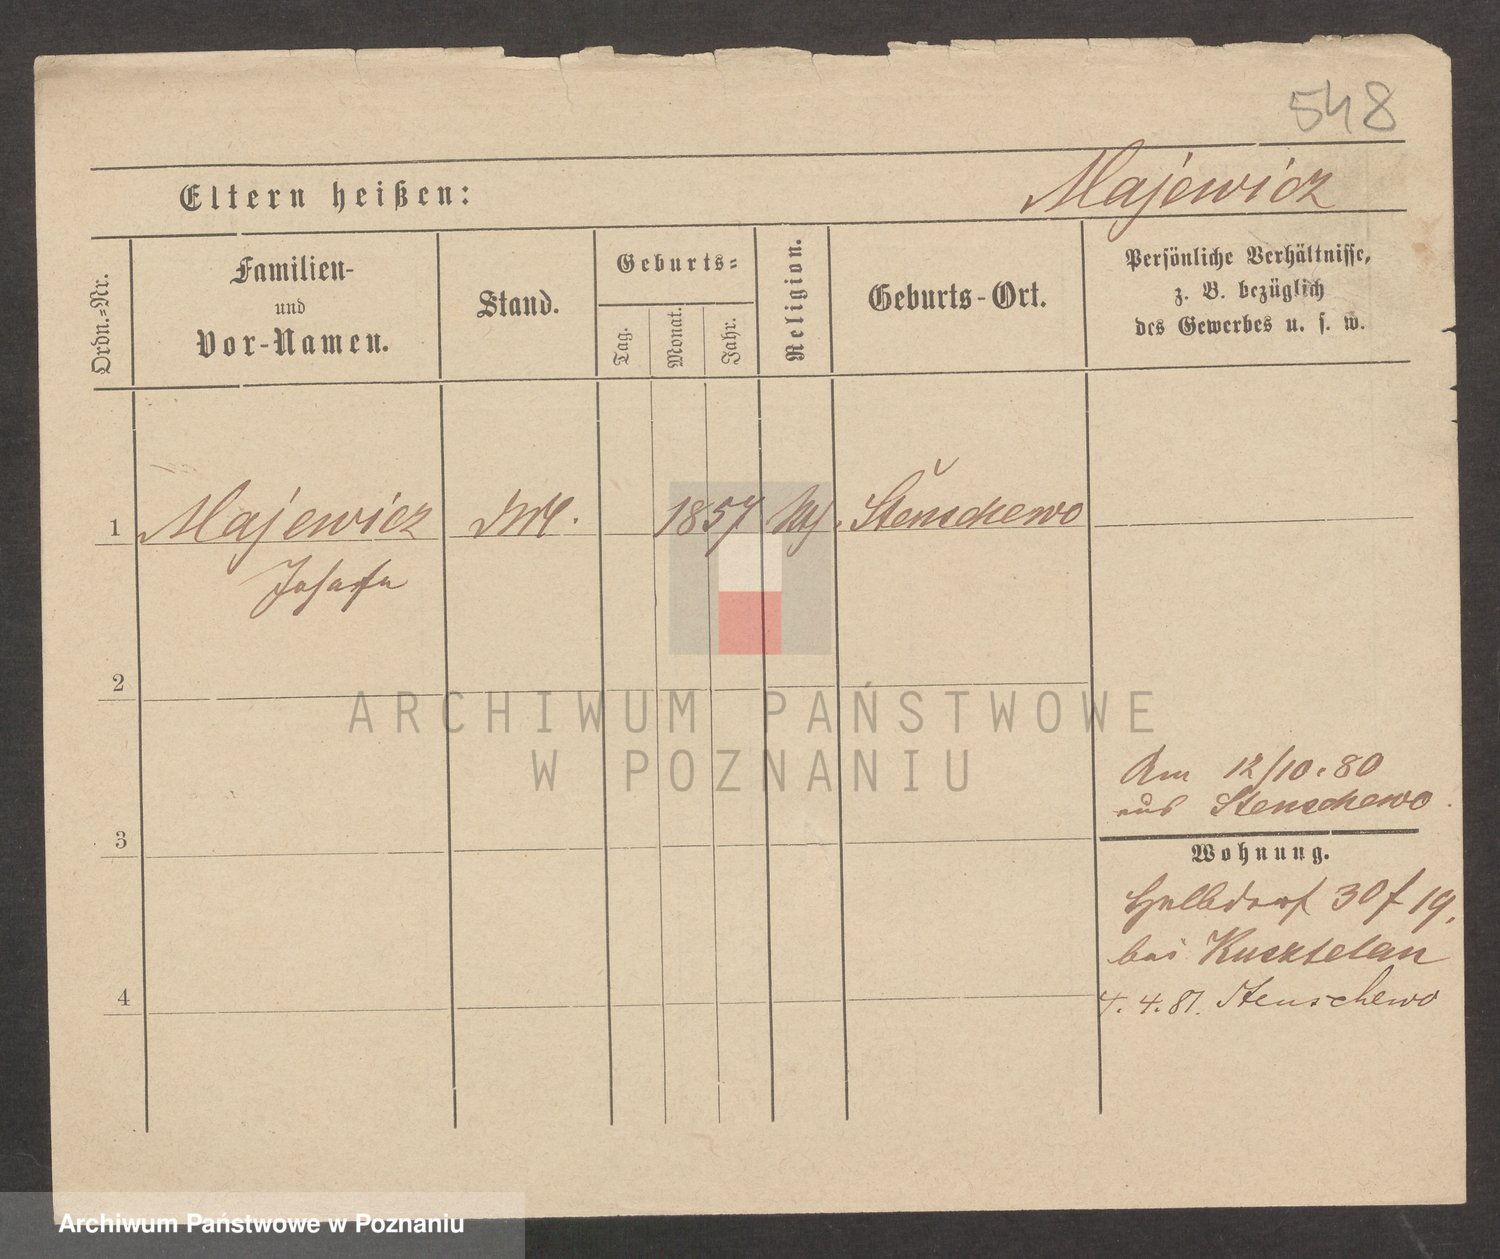 548
Eltern heißen: Majewicz
Ordn.=Nr.
Familien-
und
Vor-Namen.
Stand.
Geburts=
Tag.
Monat.
Jahr.
Religion.
Geburts-Ort.
Persönliche Verhältnisse,
z. B. bezüglich
des Gewerbes u. s. w.
1 Majewicz 1857 Stenschewo
Josefa
2
ARCHIWUM PAŃSTWOWE
W POZNANIU
Am 12/10.80
aus Stenschewo.
3
Wohnung.
Halbdorf 30 f 19.
bei
4
4. 4. 81. Stenschewo
Archiwum Państwowe w Poznaniu